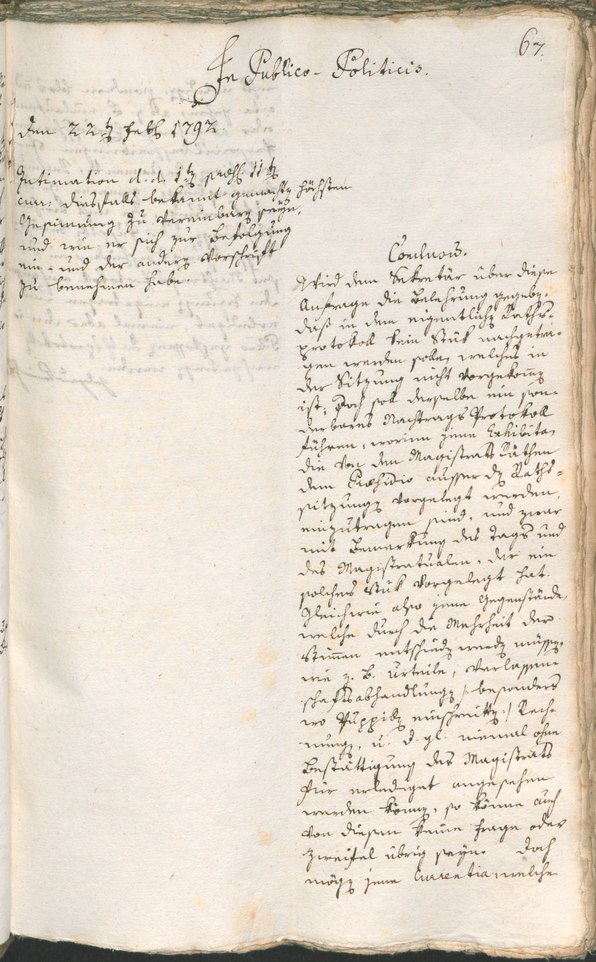 67.
In Publico-Politicis.
den 22t Feb. 1792
Intimation d. d. 1t 11t
curr: diesfalls bekannt gemachte höchsten
Gesinnung zu vereinbaren seyn,
und wie er sich zur Befolgung
ein- und der andern Vorschrift
zu benehmen habe.
Conclusum.
Wird dem Sekretär über diese
Anfrage die Belehrung gegeben:
daß in dem eigentlichen Raths-
protokoll kein Stük nachgetra-
gen werden solle, welches in
der Sitzung nicht vorgekommen
ist; Doch soll derselbe ein son-
derbares Nachtrags Protokoll
führen, worinn jene Exhibita,
die von den Magistrats Räthen
dem Präsidio ausser den Raths-
sitzungen vorgelegt werden,
einzutragen sind, und zwar
mit Bemerkung des Tags und
des Magistratualen, der ein
solches Stük vorgelegt hat.
Gleichwie also jene Gegenstände,
welche durch die Mehrheit der
Stimmen entschieden werden müssen,
wie z. B. Urteile, Verlassen-
schaftsabhandlungen /: besonders
wo Puppillen einschreiten :/ Rech-
nungen, u. d. gl. niemal ohne
Bestättigung des Magistrats
für erlediget angesehen
werden können, so könne auch
von diesen keine Frage oder
Zweifel übrig seyn. Doch
mögen jene Currentia, welche